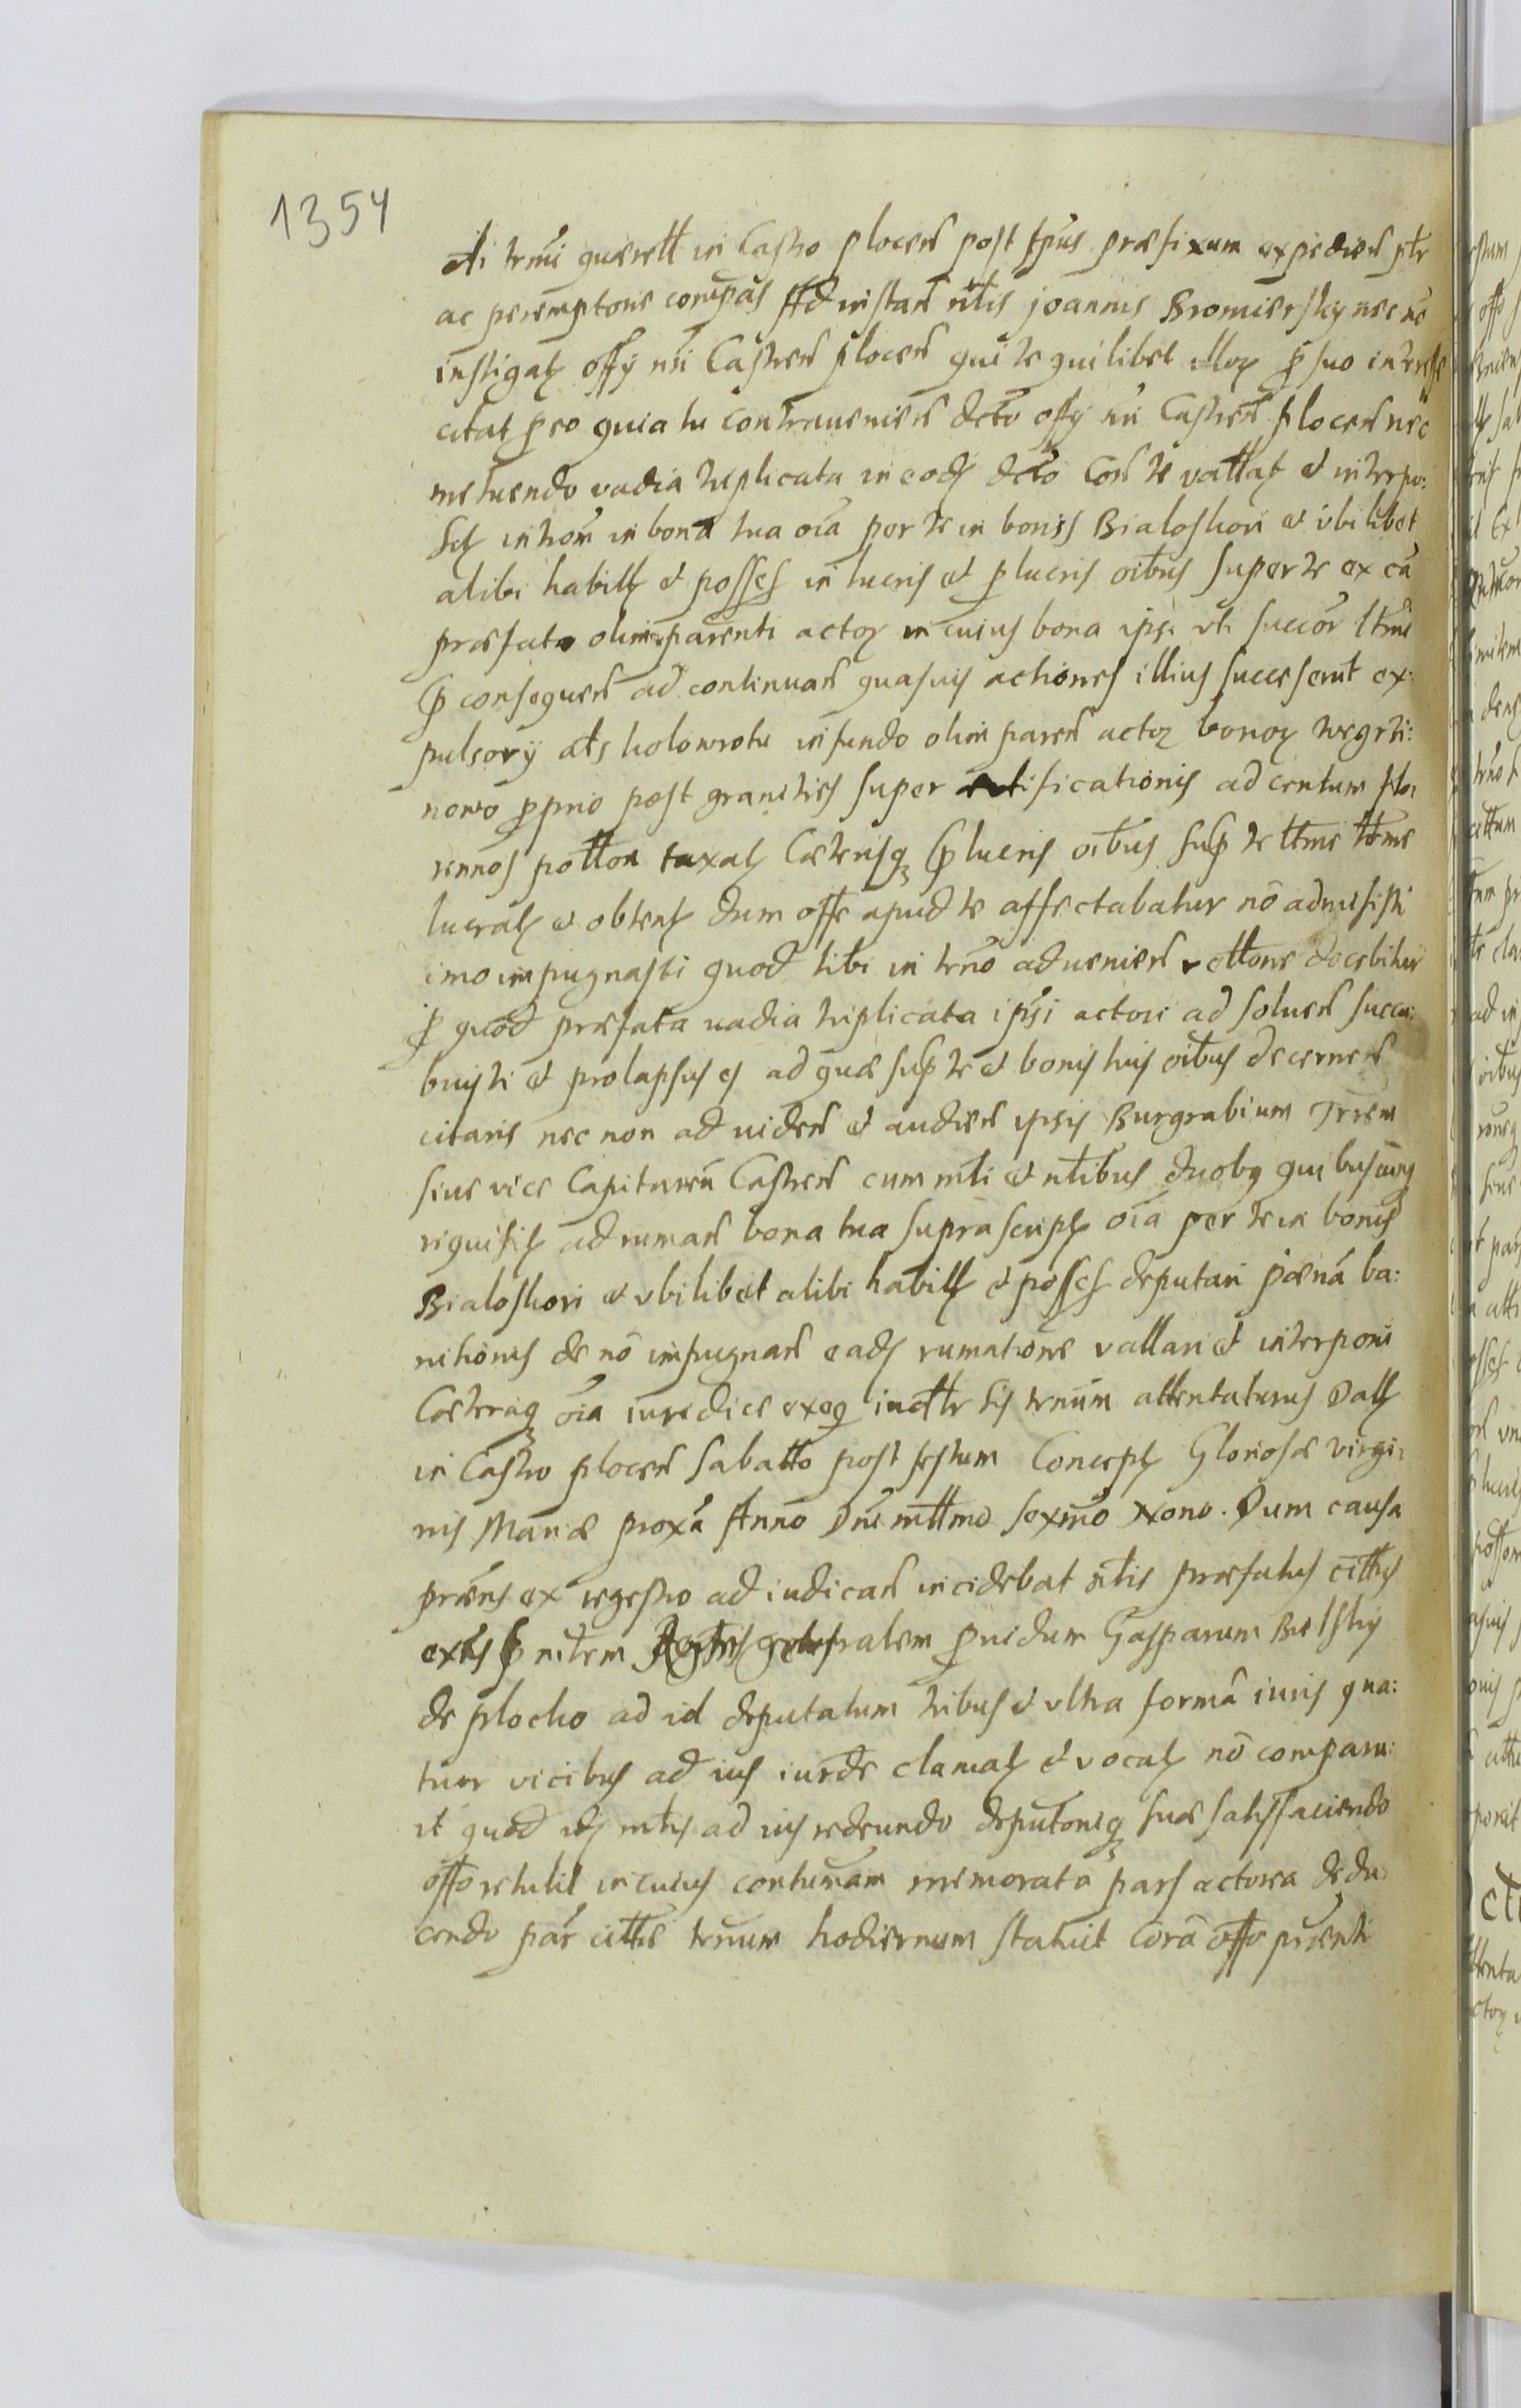 1354
ati trmi quærell in Castro plocen post ipius præfixum expedien ptr
ac peremptorie compas Ad instan nblis joannis Bromiersky nec no
instigat offy nri Castren plocen qui te quilibet illor p suo interesse
citat p eo quia tu contraueniens dcto offy nri Castren plocen nec
metuendo vadia triplicata in eodz dcto Con te vallat et interpo:
sit introm in bona tua oia per te in bonis Bialoskori et vbilibet
alibi habitt et posses in lucris et p lucris oibus super te ex ca
præfato olim parenti actor in cuius bona ipsi vti succor ltmi
p consequen ad continuan quasuis actiones illius succeserut ex:
pulsory als kolowrotu in fundo olim paren actor bonor wegrzi:
nowo pprio post granities super ædificationis ad centum flo:
rennos pollon taxat Cæterisq p lucris oibus sup te ltme ltme
lucrat et obtent dum offe apud te affectabatur no admisisti
imo impugnasti quod tibi in trno aduenien docebitur
p quod præfata uadia triplicata ipsi actori ad soluen succu:
buisti et prolapsus es ad quæ sup te et bonis tuis oibus decernen
citaris nec non ad uiden et audien ipsis Burgrabium Trrem
siue vice Capitaneu Castren cum mti et nblibus duobq quibuscunq
riquisit ad ruman bona tua suprascript oia per te in bonis
Bialoskori et vbilibet alibi habitt et posses deputari pæna ba:
nitionis de no impugnan eadz rumatione vallari et interponi
Cæteraq oia iuredice exeq iuctr sis trnum attentaturus Datt
in Castro plocen sabatto post festum Concept Gloriosæ virgi:
nis Mariæ proxa Anno Dni mllmo sexmo Nono. Dum causa
præns ex regestro ad iudican incidebat nblis præfatus citts
extis p mtrem Regni generalem puidum Gasparum Bielsky
de plocko ad id deputatum tribus et vltra forma iuris qua:
tuor vicibus ad ius iurde clamat et vocat no comparu:
it quod idz mtis ad ius redeundo deputoneq suæ satisfaciendo
offo retulit in cuius contumam memorata pars actorea dedu
cendo par citte trnum hodiernum statuit cora offo præsenti